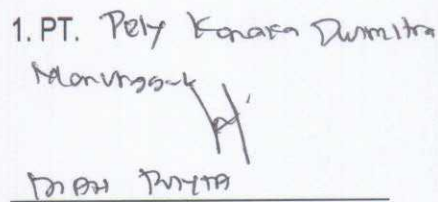 1. PT. Pely Kanaka Dwimitra
Manunggal
DIAH PUSPITA